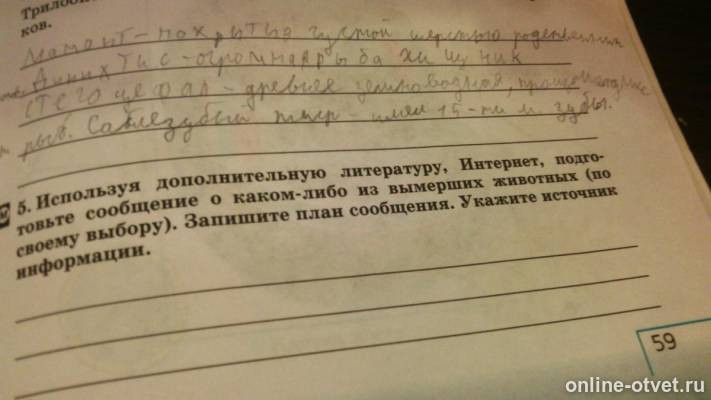 Трилоби
ков.
Мамонт - покрытый густой шерстью родственник
Динихтис - огромная рыба хищник
Стегоцефал - древнее земноводное,
рыб. Саблезубый тигр - имел 15-ти м зубы.
5. Используя дополнительную литературу, Интернет, подго-
товьте сообщение о каком-либо из вымерших животных (по
своему выбору). Запишите план сообщения. Укажите источник
информации.
59
online-otvet.ru